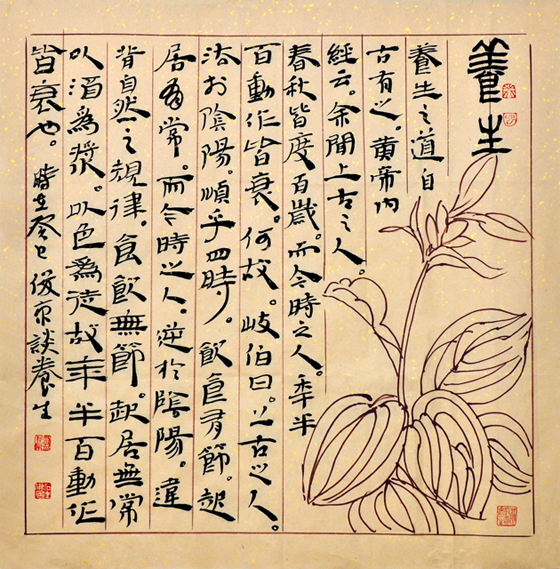 養生
養生之道自
古有之。黄帝内
經云。余聞上古之人。
春秋皆度百歲。而今時之人。年半
百動作皆衰。何故。岐伯曰。上古之人。
法於陰陽。順乎四時。飲食有節。起
居有常。而今時之人。逆於陰陽。違
背自然之規律。食飲無節。起居無常
以酒爲漿。以色爲徒故年半百動作
皆衰也。時在癸巳 京談養生